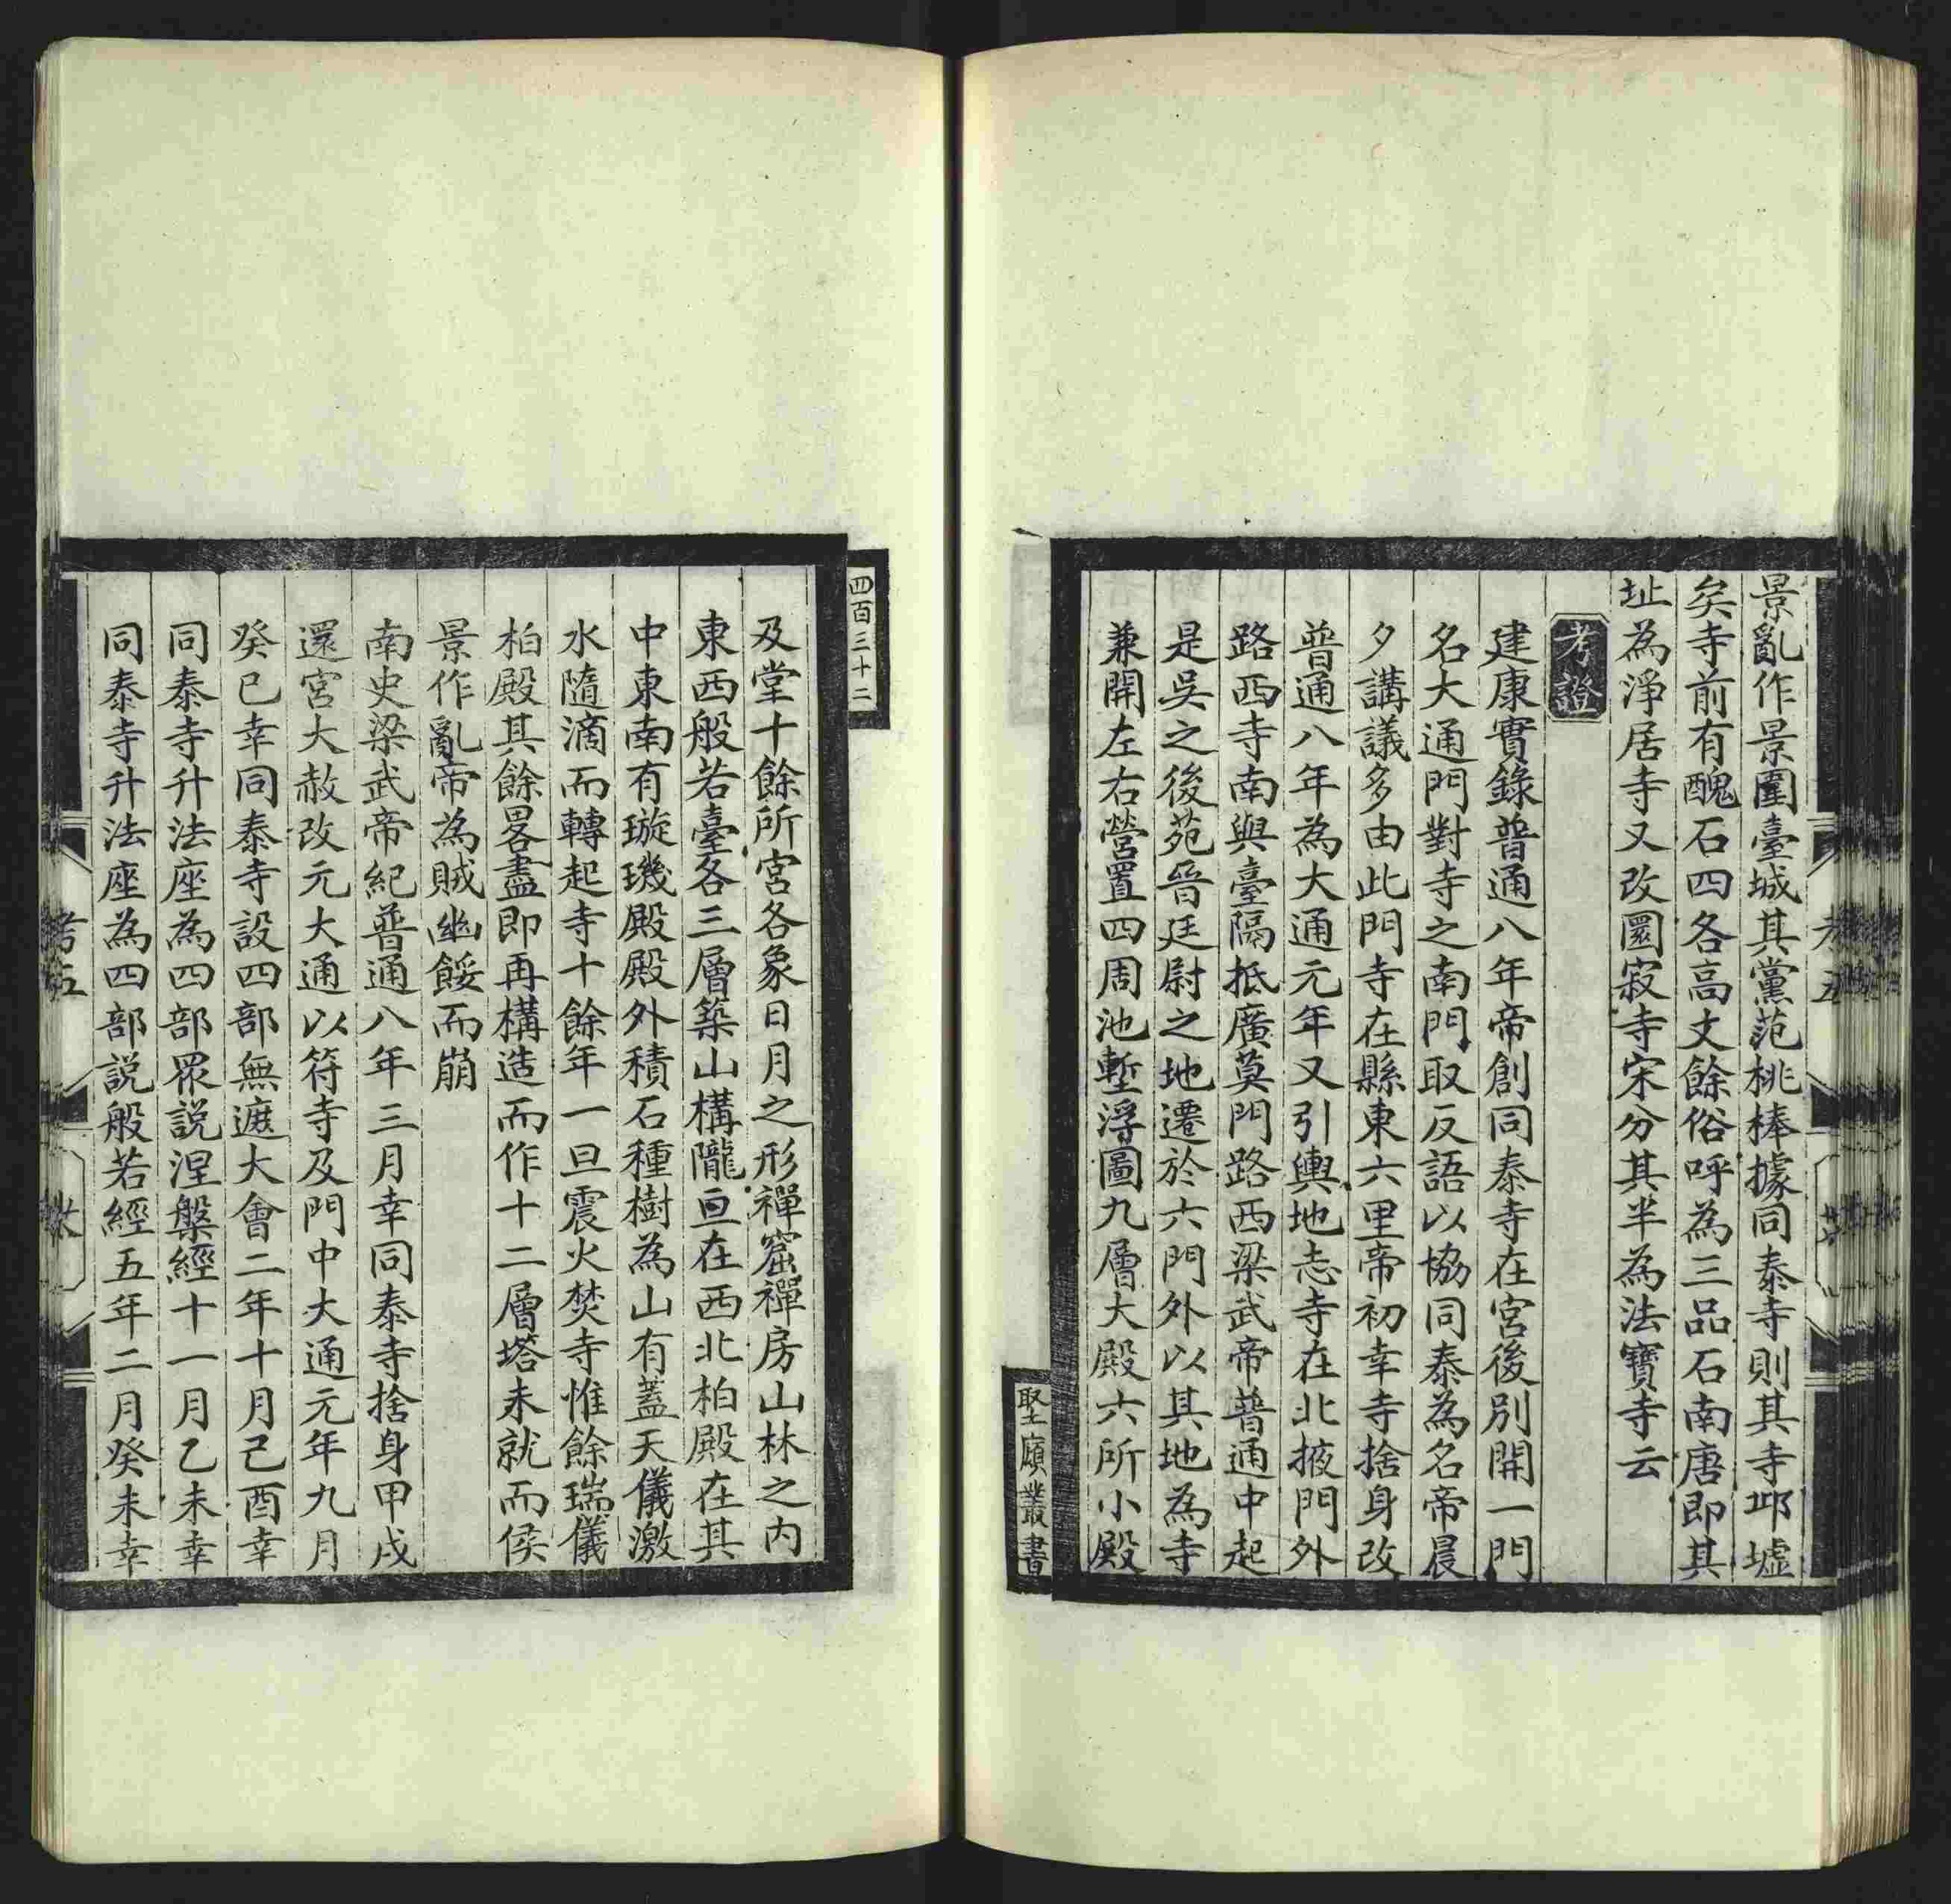 景亂作景圍臺城其黨范桃棒據同泰寺則其寺邱墟
矣寺前有醜石四各高丈餘俗呼為三品石南唐即其
址為淨居寺又改圜寂寺宋分其半為法寶寺云
考證
建康實錄普通八年帝創同泰寺在宮後別開一門
名大通門對寺之南門取反語以協同泰為名帝晨
夕講議多由此門寺在縣東六里帝初幸寺捨身改
普通八年為大通元年又引輿地志寺在北掖門外
路西寺南與臺隔抵廣莫門路西梁武帝普通中起
是吳之後苑晉廷尉之地遷於六門外以其地為寺
兼開左右營置四周池塹浮圖九層大殿六所小殿
堅匏叢書
四百三十二
及堂十餘所宮各象日月之形禪窟禪房山林之內
東西般若臺各三層築山構隴亘在西北柏殿在其
中東南有璇璣殿殿外積石種樹為山有蓋天儀激
水隨滴而轉起寺十餘年一旦震火焚寺惟餘瑞儀
柏殿其餘畧盡即再構造而作十二層塔未就而侯
景作亂帝為賊幽餒而崩
南史梁武帝紀普通八年三月幸同泰寺捨身甲戌
還宮大赦改元大通以符寺及門中大通元年九月
癸巳幸同泰寺設四部無遮大會二年十月己酉幸
同泰寺升法座為四部眾説涅槃經十一月乙未幸
同泰寺升法座為四部説般若經五年二月癸未幸
考五